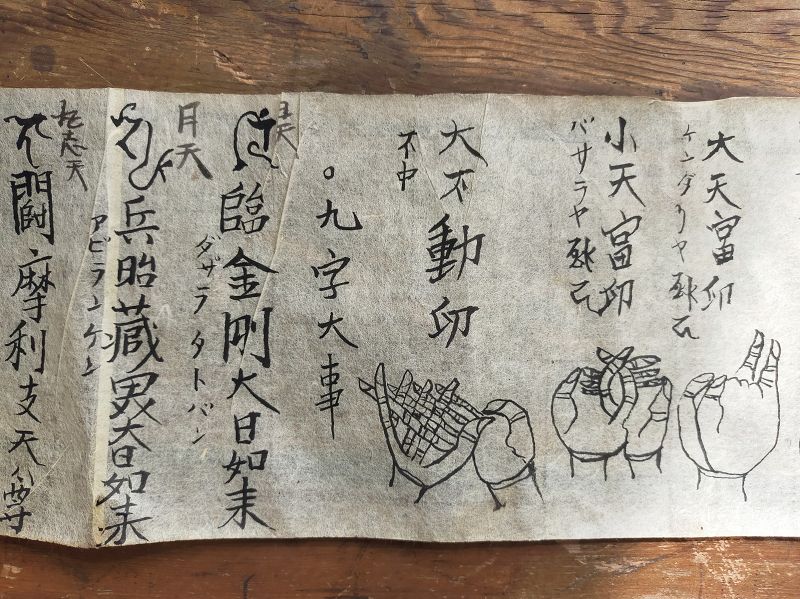 大天富印
ケンダリヤ
小天富印
バサラヤ
大不動印
不中
。九字大事
臨金剛大日如来
ダザラタトバン
月天
兵昭蔵界大日如来
アビランケン
闘摩利支天尊